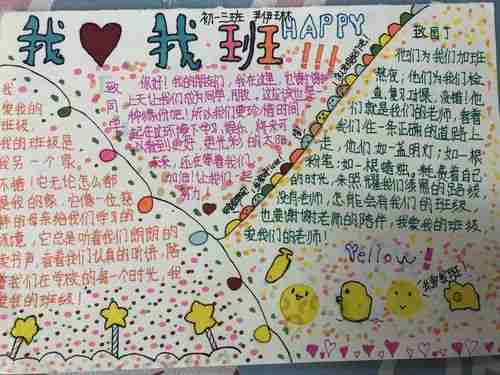 我❤我班
初一三班 尹伊琳
HAPPY
!!!
我
爱我的
班级
我的班级是
我另一个家。
不错！它无论怎么都
是我的家，它像一位慈
祥的母亲给我们学习的
环境，它总是听着我们朗朗的
读书声，看着我们认真的听讲，陪
着我们在学校的每一个时光，我
爱我的班级！
致同学
你好！我的朋友们，我在这里，也谢谢
上天让我们成为同学、朋友，这应该也是
一种缘份吧！所以我们要珍惜时间
起在这环境下学习、娱乐，将来可
以看到更好、更光彩的太阳
未来，还在等着我们，
加油！让我们一起
努力！
致园丁
他们为我们加班
熬夜，他们为我们检
查、复习功课，没错！他
们就是我们的老师，替着
我们往一条正确的道路上
走，他们如一盏明灯；如一根
粉笔；如一根蜡烛。耗费着自己
的时光，来照耀我们漆黑的路
没有老师，怎能会有我们的班级，
也要谢谢老师的陪伴，我爱我的班级，
爱我们的老师！
Yellow!
我爱我班！